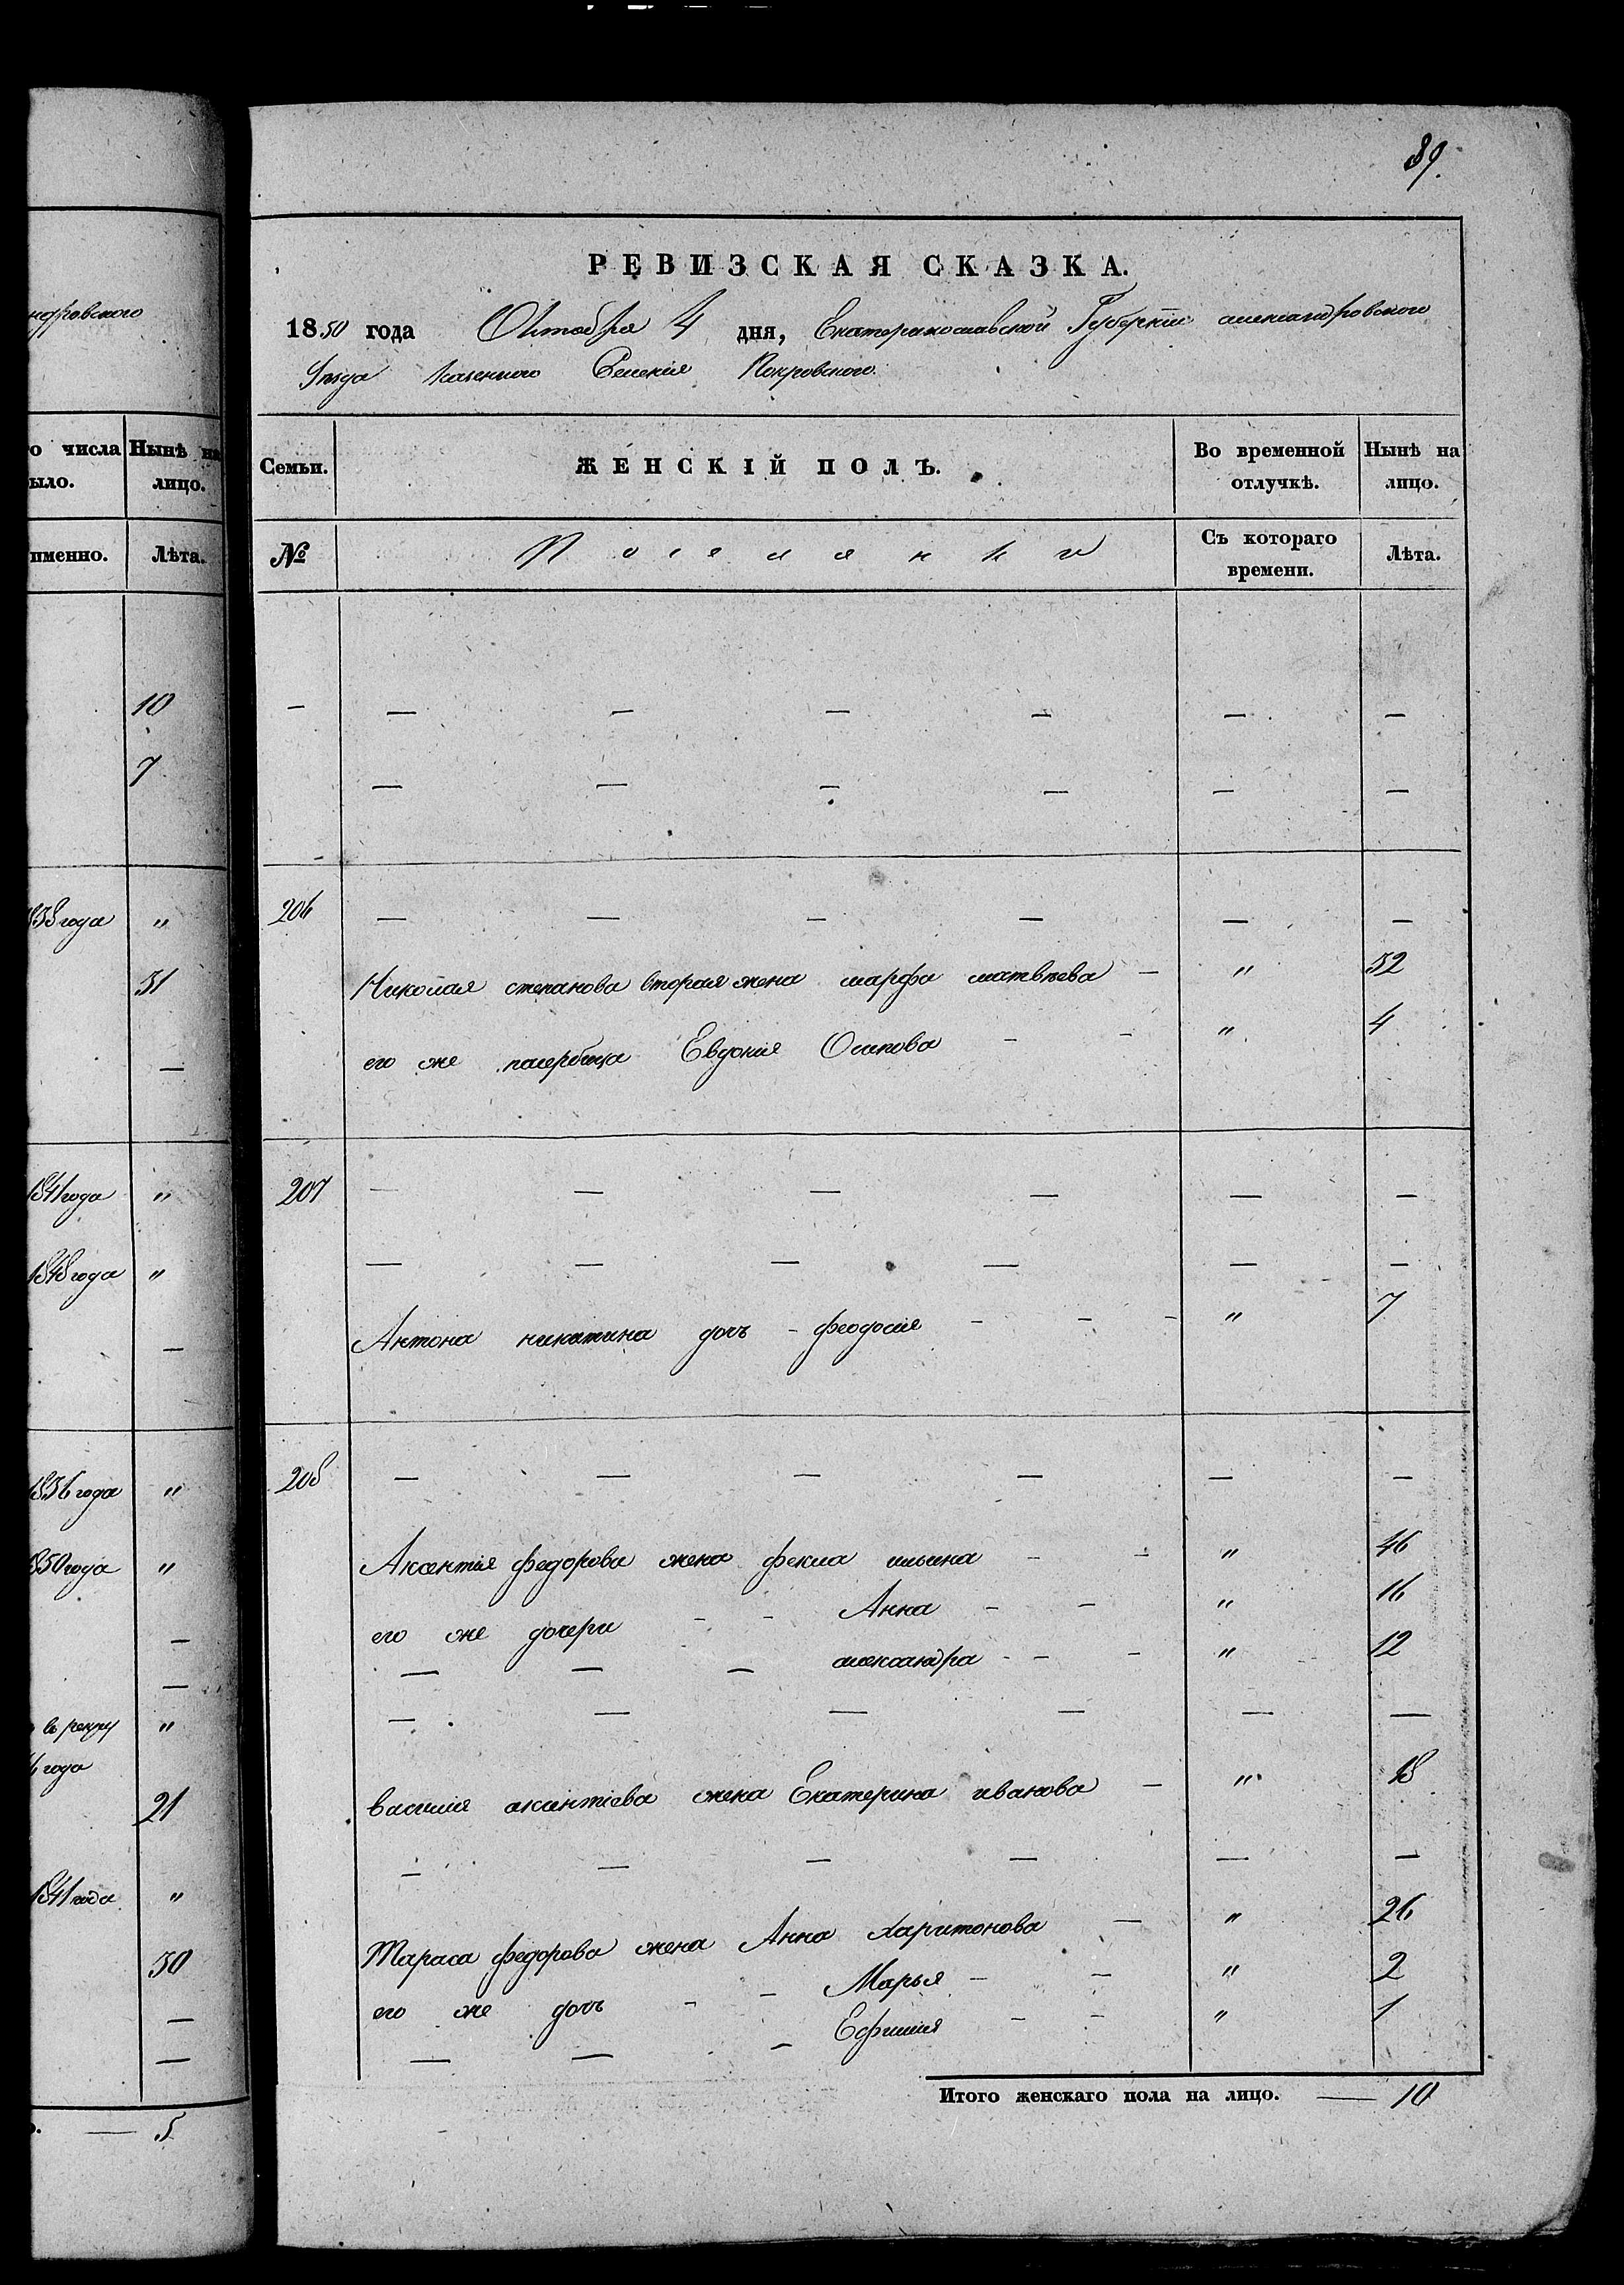 89.
РЕВИЗСКАЯ СКАЗКА.
1850 года Октября 4 дня, Екатеринославской Губернiи александровского
Уѣзда Казенного Селенiя Покровского.
ндровского
Семьи. ЖЕНСКІЙ ПОЛЪ. Во временной отлучкѣ. Нынѣ на лицо.
о числа ыло. Нынѣ на лицо.
№ Поселянки Съ котораго времени. Лѣта.
именно. Лѣта.
10 — — — — — — —
7 — — — — — —
838 года " 206 — — — — — —
31 Николая степанова вторая жена марфа матвѣева — " 32
— его же падчерица Евдокiя Осипова - - " 4
1841 года " 207 — — — — — —
1848 года " — — — — — —
— Антона никитина дочь - феодосiя - - - " 7
1836 года " 208 — — — — — —
850 года " Аксентiя федорова жена фекла ильина - - " 46
— его же дочери - - Анна - - " 16
— — — — александра - - - " 12
въ рекру " — — — — — —
года
21 василия аксентiева жена Екатерина иванова — " 18
1841 года " — — — — — —
30 Тараса федорова жена Анна харитонова — " 26
— его же дочь - - Марья - - " 2
— — — - Ефимия - - " 1
Итого женскаго пола на лицо. — 10
. — 5